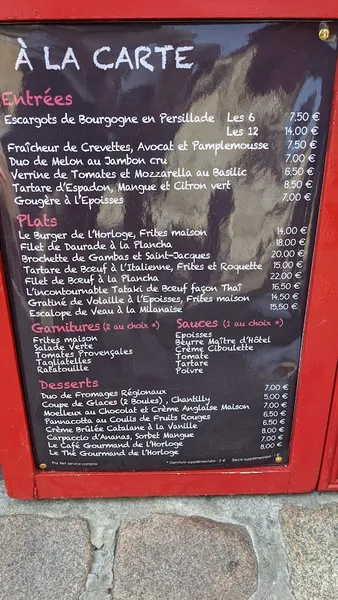 À LA CARTE
Entrées
Escargots de Bourgogne en Persillade Les 6 7,50 €
Les 12 14,00 €
Fraîcheur de Crevettes, Avocat et Pamplemousse 7,50 €
Duo de Melon au Jambon cru 7,00 €
Verrine de Tomates et Mozzarella au Basilic 6,50 €
Tartare d'Espadon, Mangue et Citron vert 8,50 €
Gougère à l'Epoisses 7,00 €
Plats
Le Burger de l'Horloge, Frites maison 14,00 €
Filet de Daurade à la Plancha 18,00 €
Brochette de Gambas et Saint-Jacques 20,00 €
Tartare de Bœuf à l'Italienne, Frites et Roquette 15,00 €
Filet de Bœuf à la Plancha 22,00 €
L'incontournable Tataki de Bœuf façon Thaï 16,50 €
Gratiné de Volaille à l'Epoisses, Frites maison 14,50 €
Escalope de Veau à la Milanaise 15,50 €
Garnitures (2 au choix *) Sauces (1 au choix *)
Frites maison Epoisses
Salade Verte Beurre Maître d'Hôtel
Tomates Provençales Crème Ciboulette
Tagliatelles Tomate
Ratatouille Tartare
Poivre
Desserts
Duo de Fromages Régionaux 7,00 €
Coupe de Glaces (2 Boules), Chantilly 5,00 €
Moelleux au Chocolat et Crème Anglaise Maison 7,00 €
Pannacotta au Coulis de Fruits Rouges 6,50 €
Crème Brûlée Catalane à la Vanille 6,50 €
Carpaccio d'Ananas, Sorbet Mangue 8,00 €
Le Café Gourmand de l'Horloge 7,00 €
Le Thé Gourmand de l'Horloge 8,00 €
Prix Net service compris * Garniture supplémentaire : € Sauce supplémentaire :